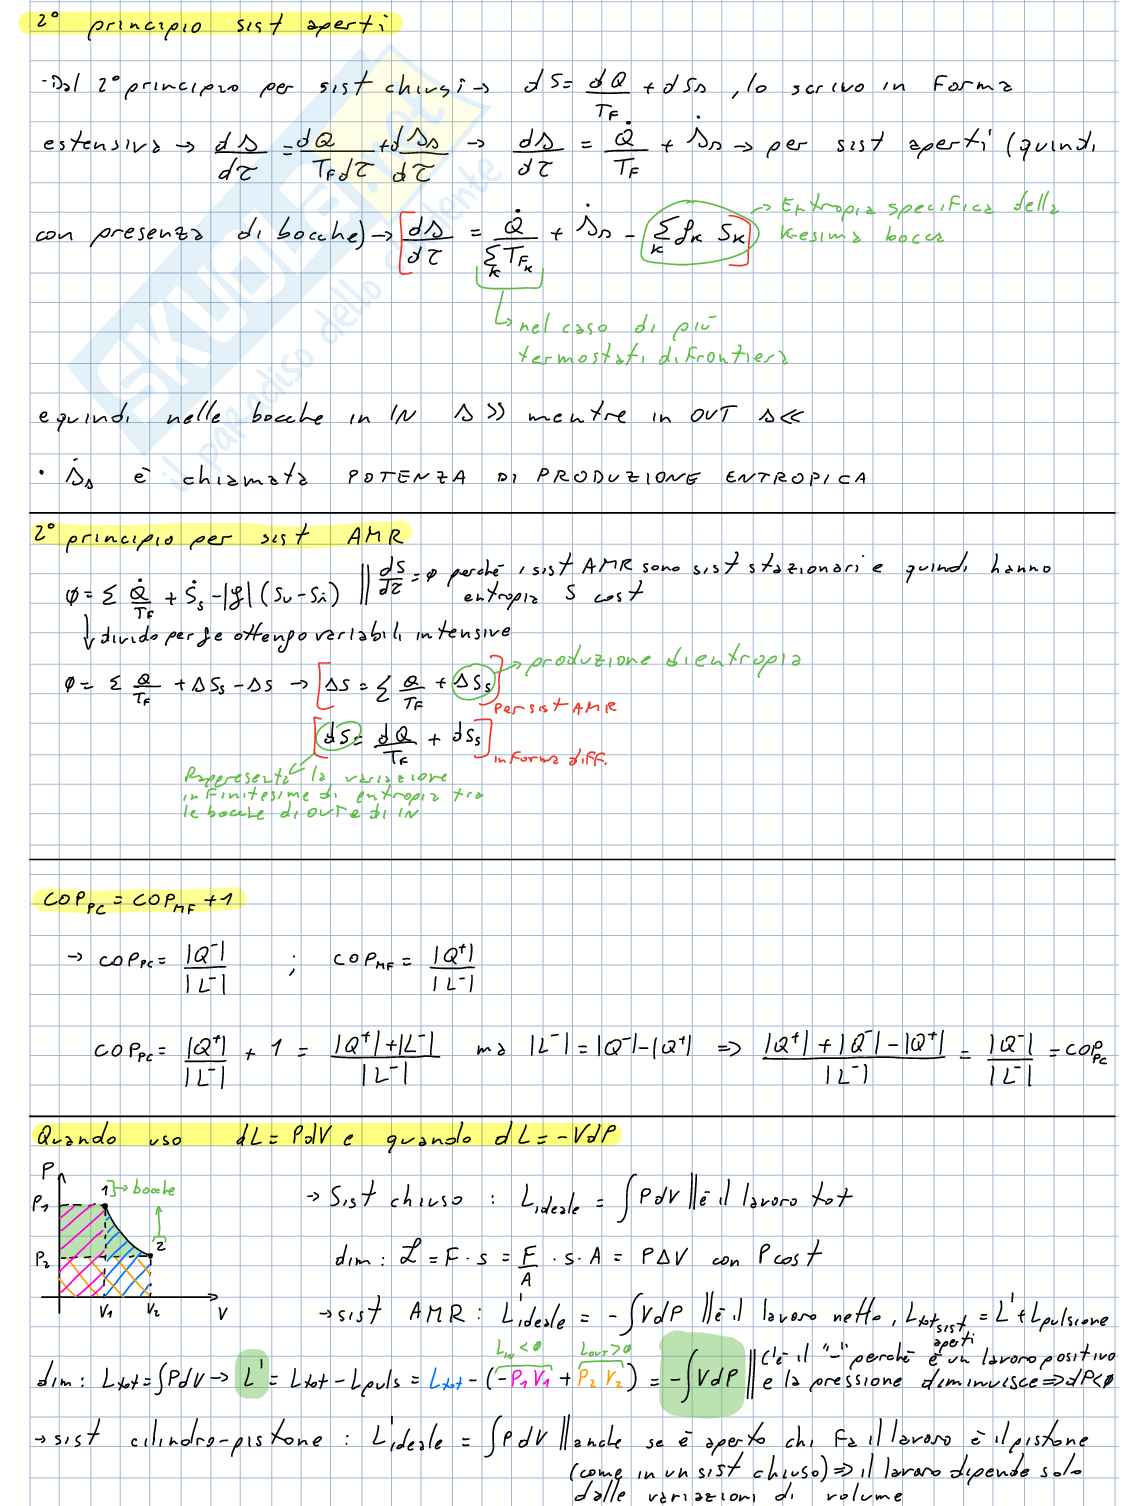 2° principio sist aperti
·Dal 2° principio per sist chiusi → dS = dQ/T_F + dS_s , lo scrivo in forma
estensiva → dS/dτ = dQ/(T_F dτ) + dS_s/dτ → dS/dτ = Q̇/T_F + Ṡ_s → per sist aperti (quindi
con presenza di bocche) → [dS/dτ = Q̇/(Σ_K T_FK) + Ṡ_s - Σ_K ℊ_K S_K] → Entropia specifica della
k-esima bocca
↳ nel caso di più
termostati di frontiera
e quindi nelle bocche in IN S >> mentre in OUT S <<
· Ṡ_s è chiamata POTENZA DI PRODUZIONE ENTROPICA
2° principio per sist AMR
φ = Σ Q̇/T_F + Ṡ_s - |ℊ| (S_u - S_i) || dS/dτ = φ perché i sist AMR sono sist stazionari e quindi hanno
entropia S cost
↓ divido per ℊ e ottengo variabili intensive
φ = Σ Q/T_F + ΔS_s - ΔS → [ΔS = Σ Q/T_F + ΔS_s] → produzione di entropia
Per sist AMR
[dS = dQ/T_F + dS_s] in forma diff.
Rapperesenta la variazione
infinitesime di entropia tra
le bocche di OUT e di IN
COP_PC = COP_MF + 1
→ COP_PC = |Q⁻|/|L⁻| ; COP_MF = |Q⁺|/|L⁻|
COP_PC = |Q⁺|/|L⁻| + 1 = (|Q⁺|+|L⁻|)/|L⁻| ma |L⁻| = |Q⁻|-|Q⁺| ⇒ (|Q⁺|+|Q⁻|-|Q⁺|)/|L⁻| = |Q⁻|/|L⁻| = COP_PC
Quando uso dL = PdV e quando dL = -VdP
P
P₁
P₂
1 → bocche
2
V₁ V₂ V
→ Sist chiuso : L_ideale = ∫PdV || è il lavoro tot
dim : ℒ = F · s = F/A · s · A = PΔV con P cost
→ sist AMR : L'_ideale = -∫VdP || è il lavoro netto, L_tot sist aperti = L' + L_pulsione
L_IN < 0 L_OUT > 0
dim : L_tot = ∫PdV → L' = L_tot - L_puls = L_tot - (-P₁V₁ + P₂V₂) = -∫VdP || C'è il "-" perché è un lavoro positivo
e la pressione diminuisce ⇒ dP < φ
→ sist cilindro-pistone : L'_ideale = ∫PdV || anche se è aperto chi fa il lavoro è il pistone
(come in un sist chiuso) ⇒ il lavoro dipende solo
dalle variazioni di volume
SKUOLA.net
il paradiso dello studente